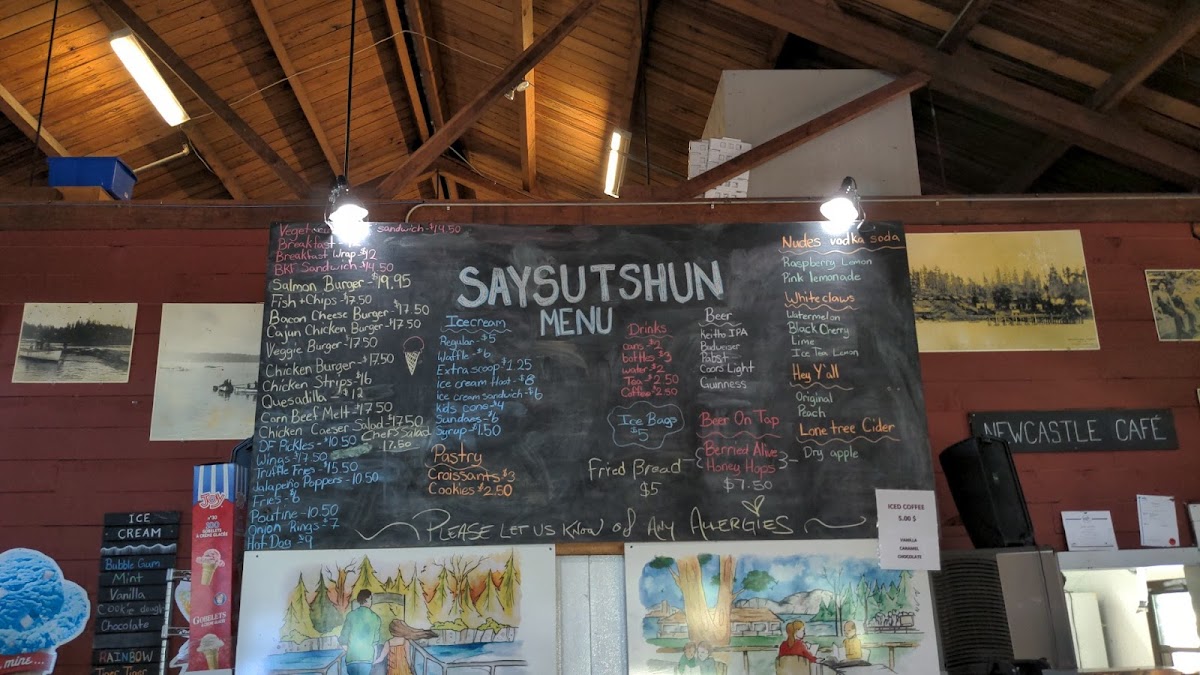 sandwich-$14.50
Breakfast
Breakfast Wrap-$12
BKF Sandwich-$14.50
Salmon Burger-$19.95
Fish + Chips-$17.50
Bacon Cheese Burger-$17.50
Cajun Chicken Burger-$17.50
Veggie Burger-$17.50
Chicken Burger-$17.50
Chicken Strips-$16
Quesadilla-$12
Corn Beef Melt-$17.50
Chicken Caeser Salad-$17.50
Chef Salad
17.50
DF Pickles-$10.50
Wings-$17.50
Truffle Fries-$15.50
Jalapeño Poppers-10.50
Fries-$6
Poutine-10.50
Onion Rings-$7
Hot Dog-$9
SAYSUTSHUN
MENU
Icecream
Regular-$5
Waffle-$6
Extra scoop-$1.25
ice cream float-$8
ice cream sandwich-$6
kids cone-$4
Sundaes-$6
Syrup-$1.50
Pastry
Croissants-$3
Cookies-$2.50
Drinks
cans-$2
bottles-$3
water-$2
Tea-$2.50
Coffee-$2.50
Ice Bags
$5
Fried Bread
$5
Beer
Keiths IPA
Budweiser
Pabst
Coors Light
Guinness
Beer On Tap
Berried Alive
Honey Hops
$7.50
Nudes vodka soda
Raspberry Lemon
Pink lemonade
Whiteclaws
Watermelon
Black Cherry
Lime
Ice Tea Lemon
Hey Y'all
Original
Peach
Lone tree Cider
Dry apple
PLEASE LET US KNOW of ANY ALLERGIES
ICED COFFEE
5.00 $
VANILLA
CARAMEL
CHOCOLATE
NEWCASTLE CAFÉ
ICE
CREAM
Bubble Gum
Mint
Vanilla
Cook'n dough
Chocolate
RAINBOW
Tiger Tiger
JOY
100
GOBELETS
mine...